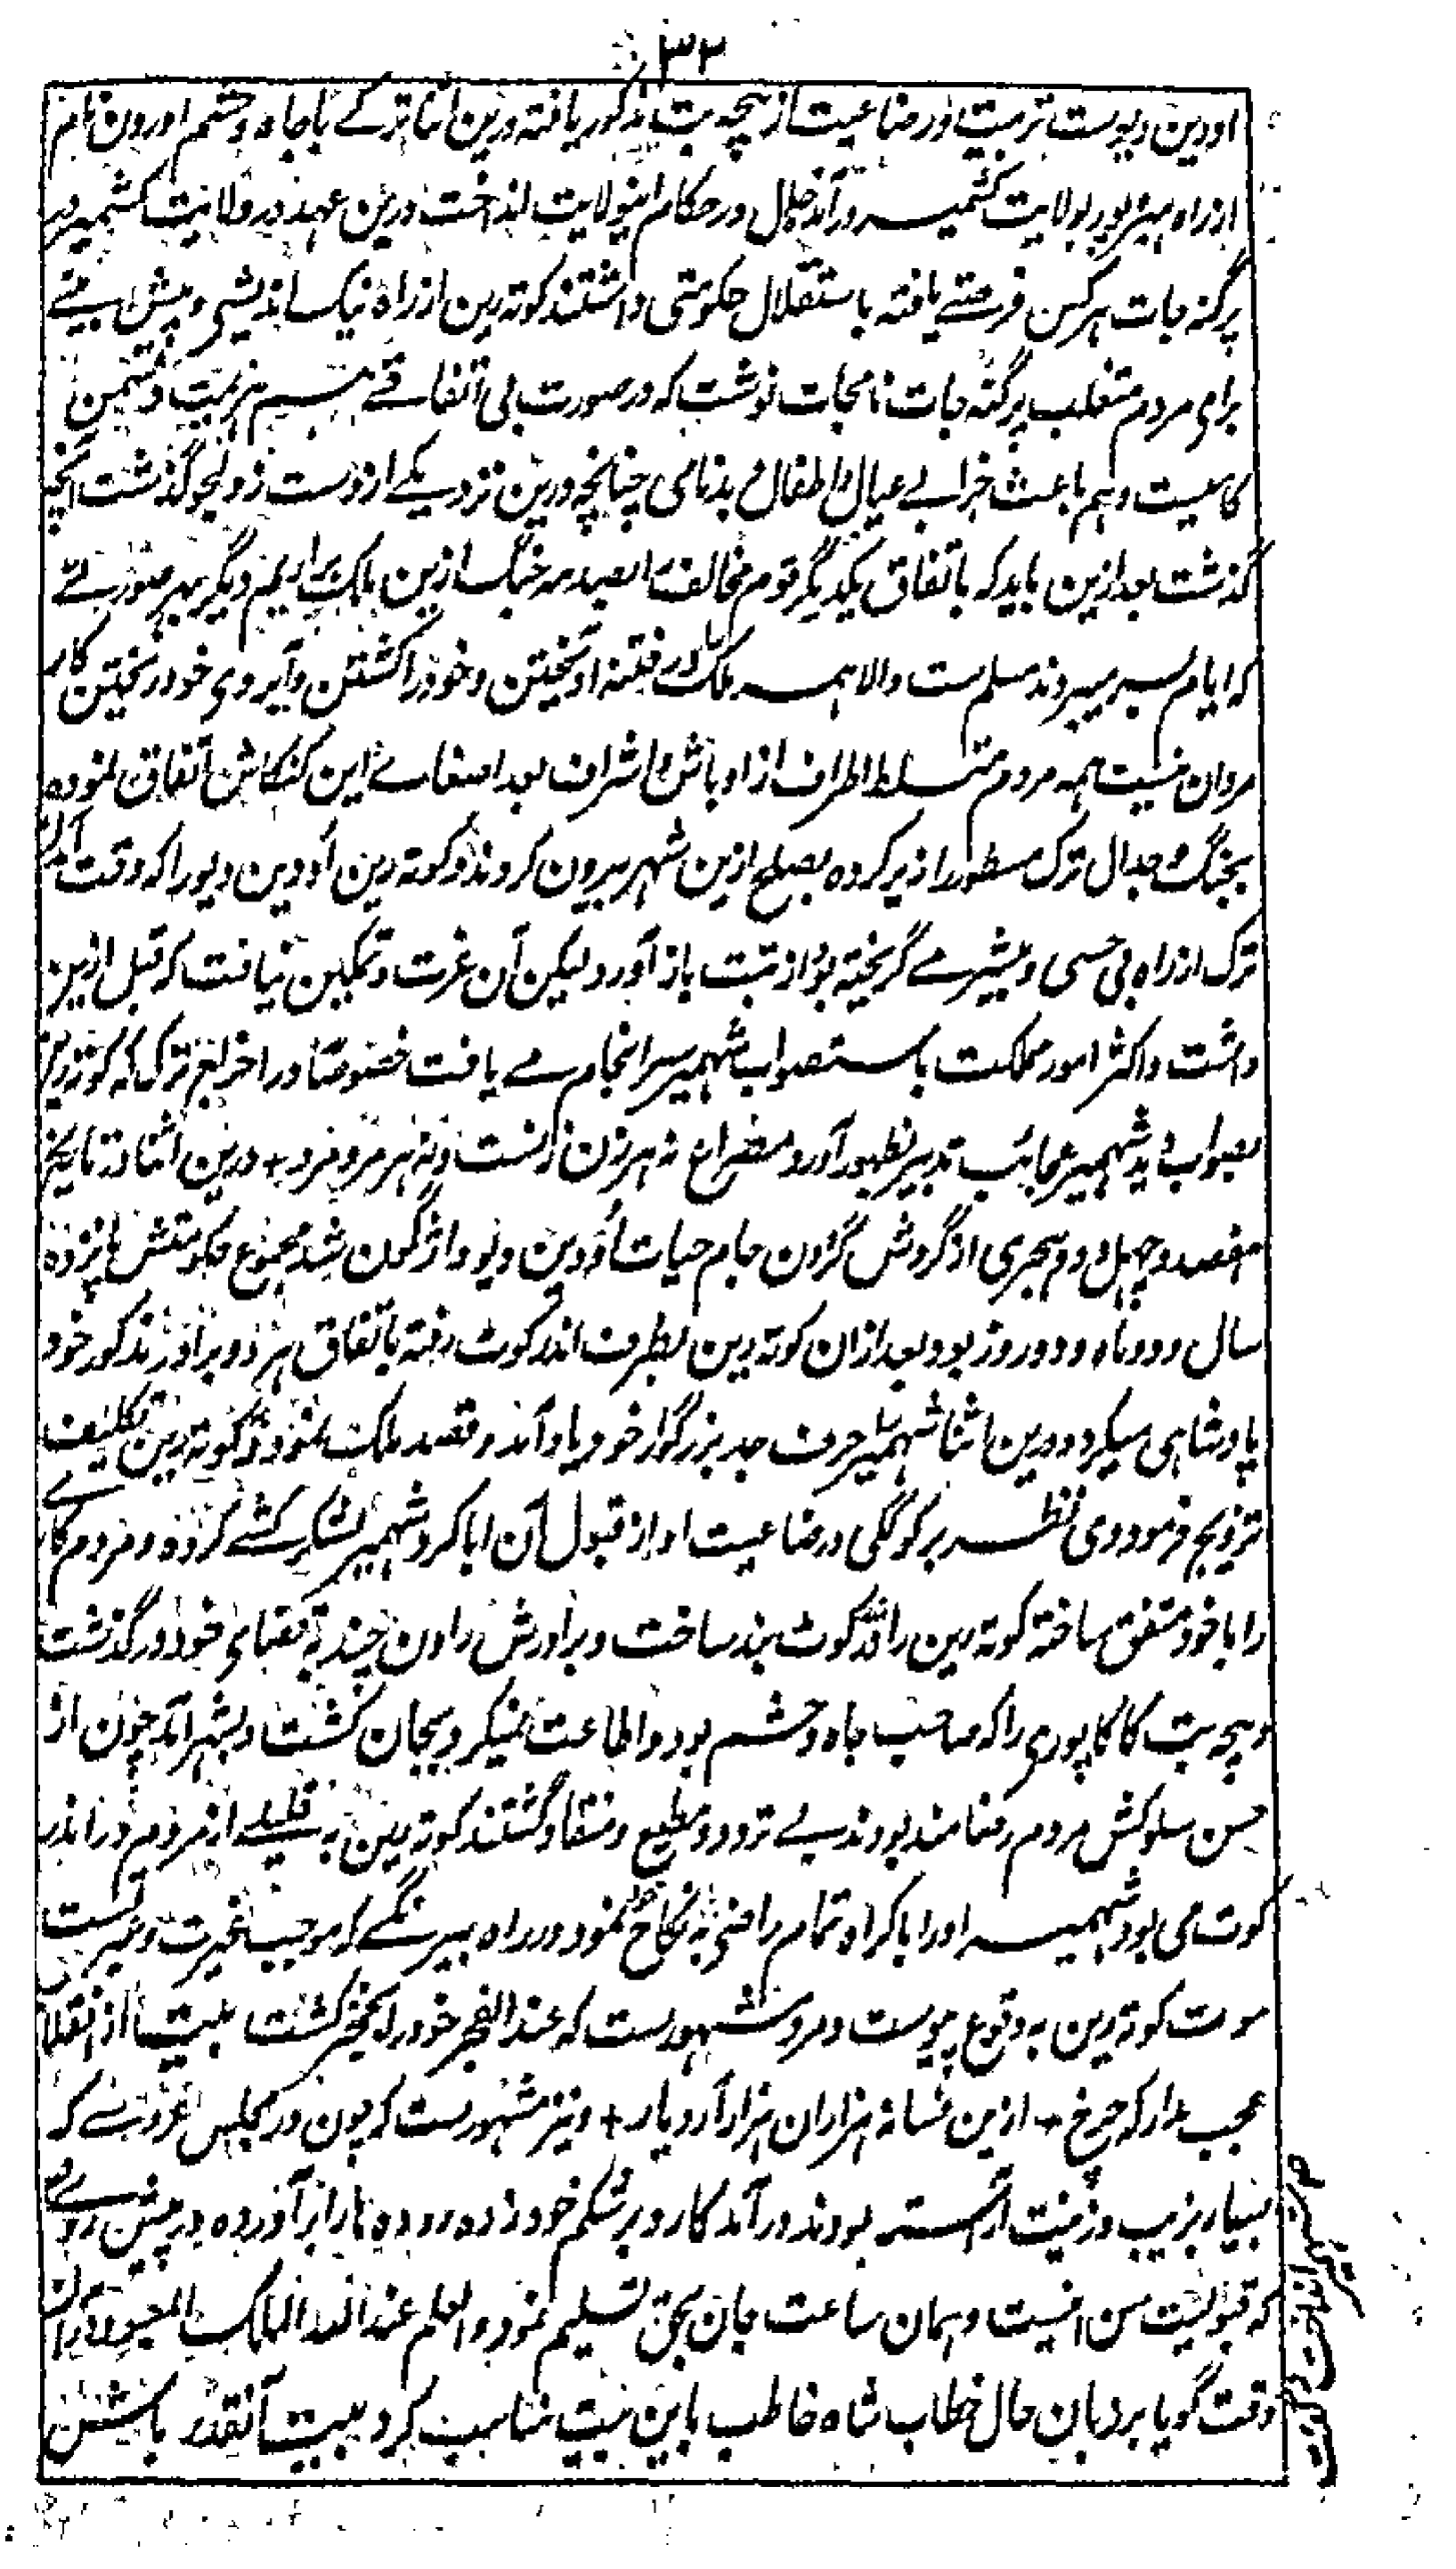 ۳۲
اودین دیوست تربیت و رضاعیت از بچه بت مذکور یافته درین اثنا ترکے با جاہ و حشم اورون نام
از راہ ہیرہ پور بولایت کشمیر درآمد خلل در حکام اینولایت انداخت درین عہد در ولایت کشمیر در
پرگنہ جات ہر کس فرصتے یافتہ باستقلال حکومتی داشتند کوتہ رین از راہ نیک اندیشی و پیش بینے
برای مردم متغلب پرگنہ جات نامجات نوشت کہ در صورت بی اتفاقے ہم ہزیمت دشمن
کامیست و ہم باعث خرابے عیال و اطفال و بدنامی چنانچہ درین نزدیکے از دست ذولچو گذشت انچہ
گذشت بعد ازین باید کہ باتفاق یکدیگر قوم مخالف را بصدمہ جنگ ازین ملک برآریم دیگر بہر صورتے
کہ ایام بسر میبروند مسلم ست والا ہمہ ملک در فتنہ آویختن و خود را کشتن و آبروی خود ریختن کار
مردان نیست ہمہ مردم متسلط اطراف از اوباش و اشراف بعد اصغاے این کنکاش اتفاق نمودہ
بجنگ و جدال ترک مسطور را زیر کردہ بصلح ازین شہر بیرون کردند و کوتہ رین اودین دیو را کہ وقت آمدن
ترک از راہ بی حسی و بیشرمے گریختہ بود از تبت باز آورد لیکن آن عزت و تمکین نیافت کہ قبل ازین
داشت و اکثر امور مملکت باستصواب شہمیر سرانجام مے یافت خصوصا در اخراج ترک کہ کوتہ رین
بصوابدید شہمیر عجائب تدبیر بظہور آورد مصراع نہ ہر زن زنست و نہ ہر مرد مرد + درین اثنا در تاریخ
ہفصد و چہل و دوم ہجری از گردش گردون جام حیات اودین دیو واژگون شد مجموع حکومتش پانزدہ
سال و دو ماہ و دو روز بود بعد ازان کوتہ رین بطرف اندرکوٹ رفتہ باتفاق ہر دو برادر مذکور خود
پادشاہی میکرد و درین اثنا شہمیر را حرف جد بزرگوار خود یاد آمد و قصد ملک نمود و کوتہ رین را تکلیف
تزویج فرمود وی نظر بر کوکگی و رضاعیت او از قبول آن ابا کرد شہمیر لشکر کشے کردہ و مردم کاری
را با خود متفق ساختہ کوتہ رین را در اندرکوٹ بند ساخت و برادرش راون چند بقفاے خود درگذشت
و بچہ بت کاکاپوری را کہ صاحب جاہ و حشم بود و اطاعت نمیکرد بیجان کشت و بشہر آمد چون از
حسن سلوکش مردم رضامند بودند بے تردد و مطیع و منقاد گشتند کوتہ رین بہ قلیلے از مردم در اندر
کوت می بود شہمیر او را باکراہ تمام راضی بہ نکاح نمود و در راہ بیرنگے کہ موجب غیرت و عبرت است
موت کوتہ رین بہ وقوع پیوست و مروے مشہورست کہ عند الفجر خود را بخنجر کشت بیت از انقلاب
عجب مدار کہ چرخ + ازین فسانہ ہزاران ہزار آرد یاد + و نیز مشہورست کہ چون در مجلس عروسے کہ
بسیار بزیب و زینت آراستہ بودند درآمد کارد بر شکم خود زدہ رودہ ہا را برآوردہ در پیش روے
کہ قبولیت من اینست و ہمان ساعت جان بحق تسلیم نمود والعلم عند اللہ الملک المعبود دران
وقت گویا بزبان حال خطاب شاہ مخاطب باین بیت مناسب کرد بیت آنقدر باکشتن